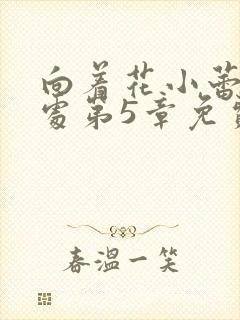 向着花小蕾
处第5章免费
春温一笑